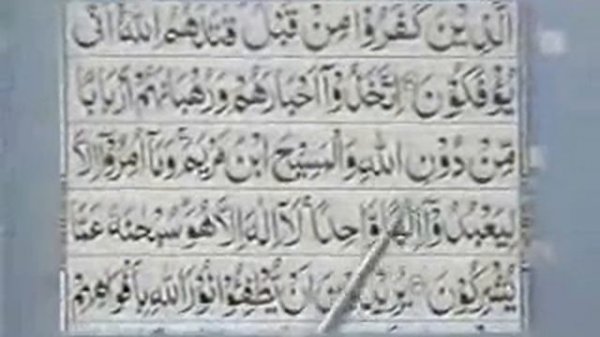 الَّذِيْنَ كَفَرُوْا مِنْ قَبْلُ قٰتَلَهُمُ اللّٰهُ اَنّٰى
يُؤْفَكُوْنَ اِتَّخَذُوْۤا اَحْبَارَهُمْ وَرُهْبَانَهُمْ اَرْبَابًا
مِّنْ دُوْنِ اللّٰهِ وَالْمَسِيْحَ ابْنَ مَرْيَمَ وَمَاۤ اُمِرُوْۤا اِلَّا
لِيَعْبُدُوْۤا اِلٰهًا وَّاحِدًا لَاۤ اِلٰهَ اِلَّا هُوَ سُبْحٰنَهٗ عَمَّا
يُشْرِكُوْنَ يُرِيْدُوْنَ اَنْ يُّطْفِـُٔوْا نُوْرَ اللّٰهِ بِاَفْوَاهِهِمْ